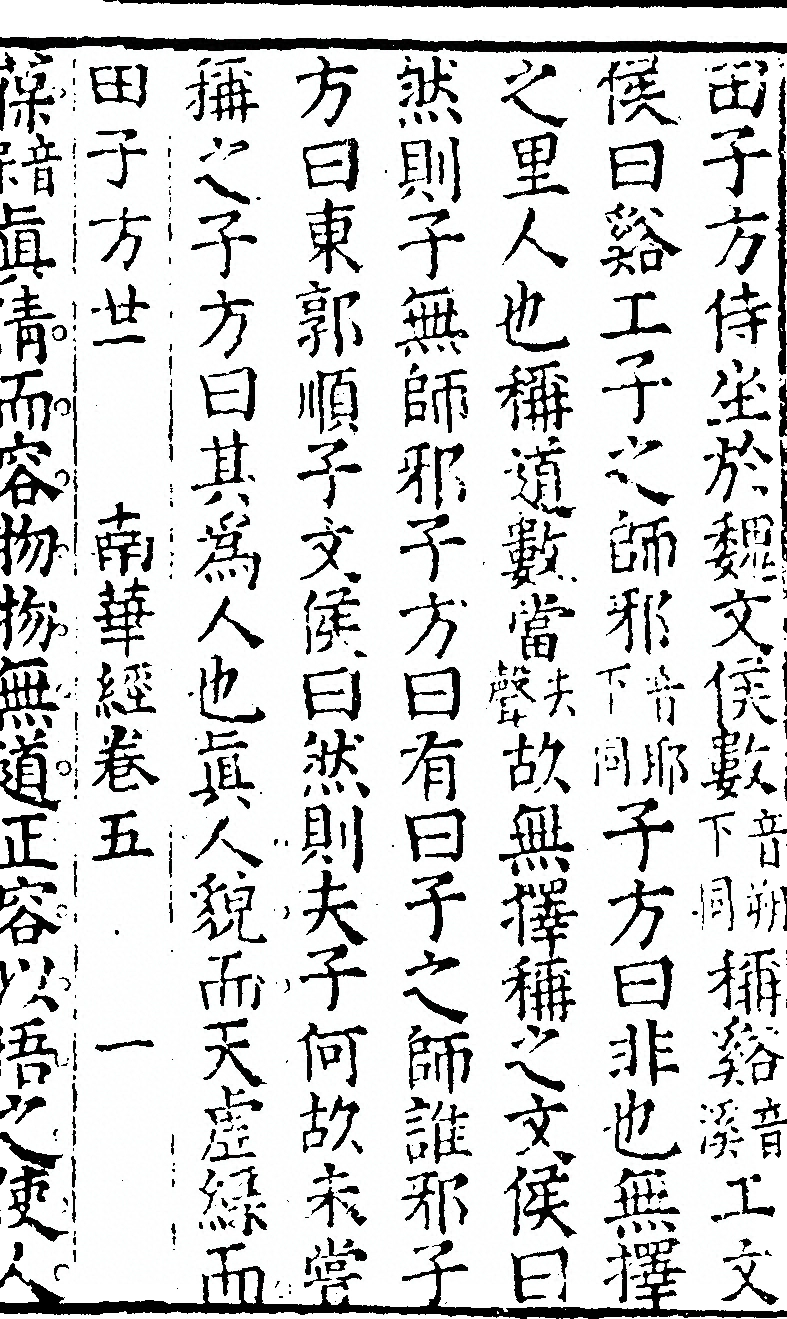 田子方侍坐於魏文侯數音朔下同稱谿音溪工文
侯曰谿工子之師邪音耶下同子方曰非也無擇
之里人也稱道數當去聲故無擇稱之文侯曰
然則子無師邪子方曰有曰子之師誰邪子
方曰東郭順子文侯曰然則夫子何故未嘗
稱之子方曰其為人也真人貌而天虛緣而
田子方廿一 南華經卷五 一
葆音保真清而容物物無道正容以悟之使人